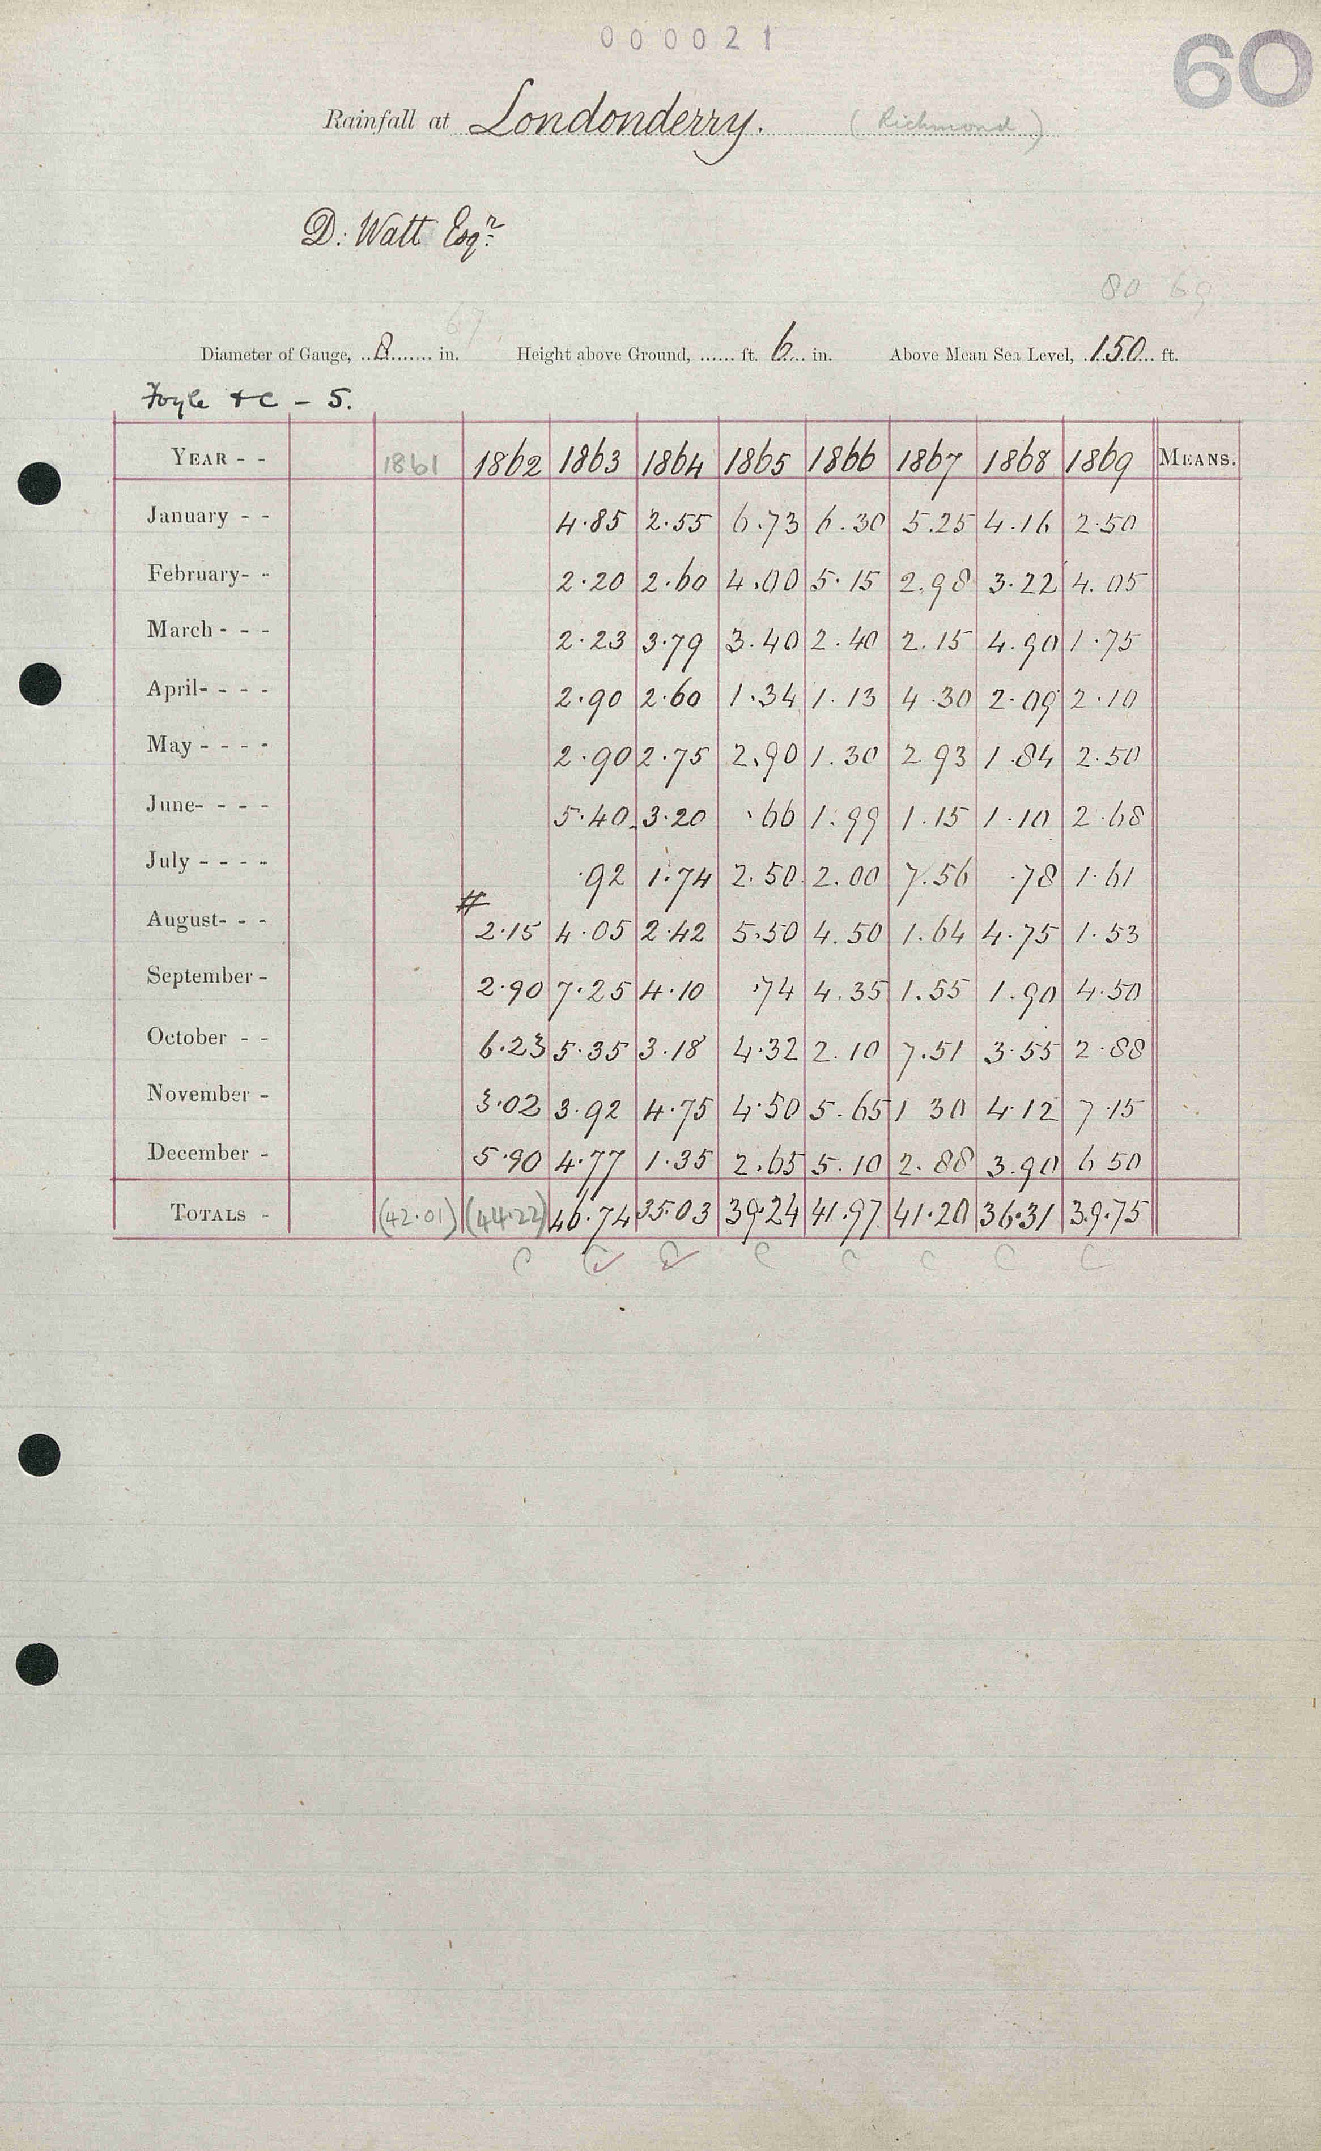 000021
60
Rainfall at Londonderry. (Richmond)
D: Watt Esqr.
80 69
67
Diameter of Gauge, ..8....... in. Height above Ground, ...... ft. 6... in. Above Mean Sea Level, .150.. ft.
Foyle &c - 5.
YEAR - - 1861 1862 1863 1864 1865 1866 1867 1868 1869 MEANS.
January - - 4.85 2.55 6.73 6.30 5.25 4.16 2.50
February- - 2.20 2.60 4.00 5.15 2.98 3.22 4.05
March - - - 2.23 3.79 3.40 2.40 2.15 4.90 1.75
April- - - - 2.90 2.60 1.34 1.13 4.30 2.09 2.10
May - - - - 2.90 2.75 2.90 1.30 2 93 1.84 2.50
June- - - - 5.40 3.20 .66 1.99 1.15 1.10 2.68
July - - - - .92 1.74 2.50 2.00 7.56 .78 1.61
#
August- - - 2.15 4.05 2.42 5.50 4.50 1.64 4.75 1.53
September - 2.90 7.25 4.10 .74 4.35 1.55 1.90 4.50
October - - 6.23 5.35 3.18 4.32 2.10 7.51 3.55 2.88
November - 3.02 3.92 4.75 4.50 5.65 1 30 4.12 7.15
December - 5.90 4.77 1.35 2.65 5.10 2.88 3.90 6 50
TOTALS - (42.01) (44.22) 46.74 35.03 39.24 41.97 41.20 36.31 39.75
C C C C C C C C